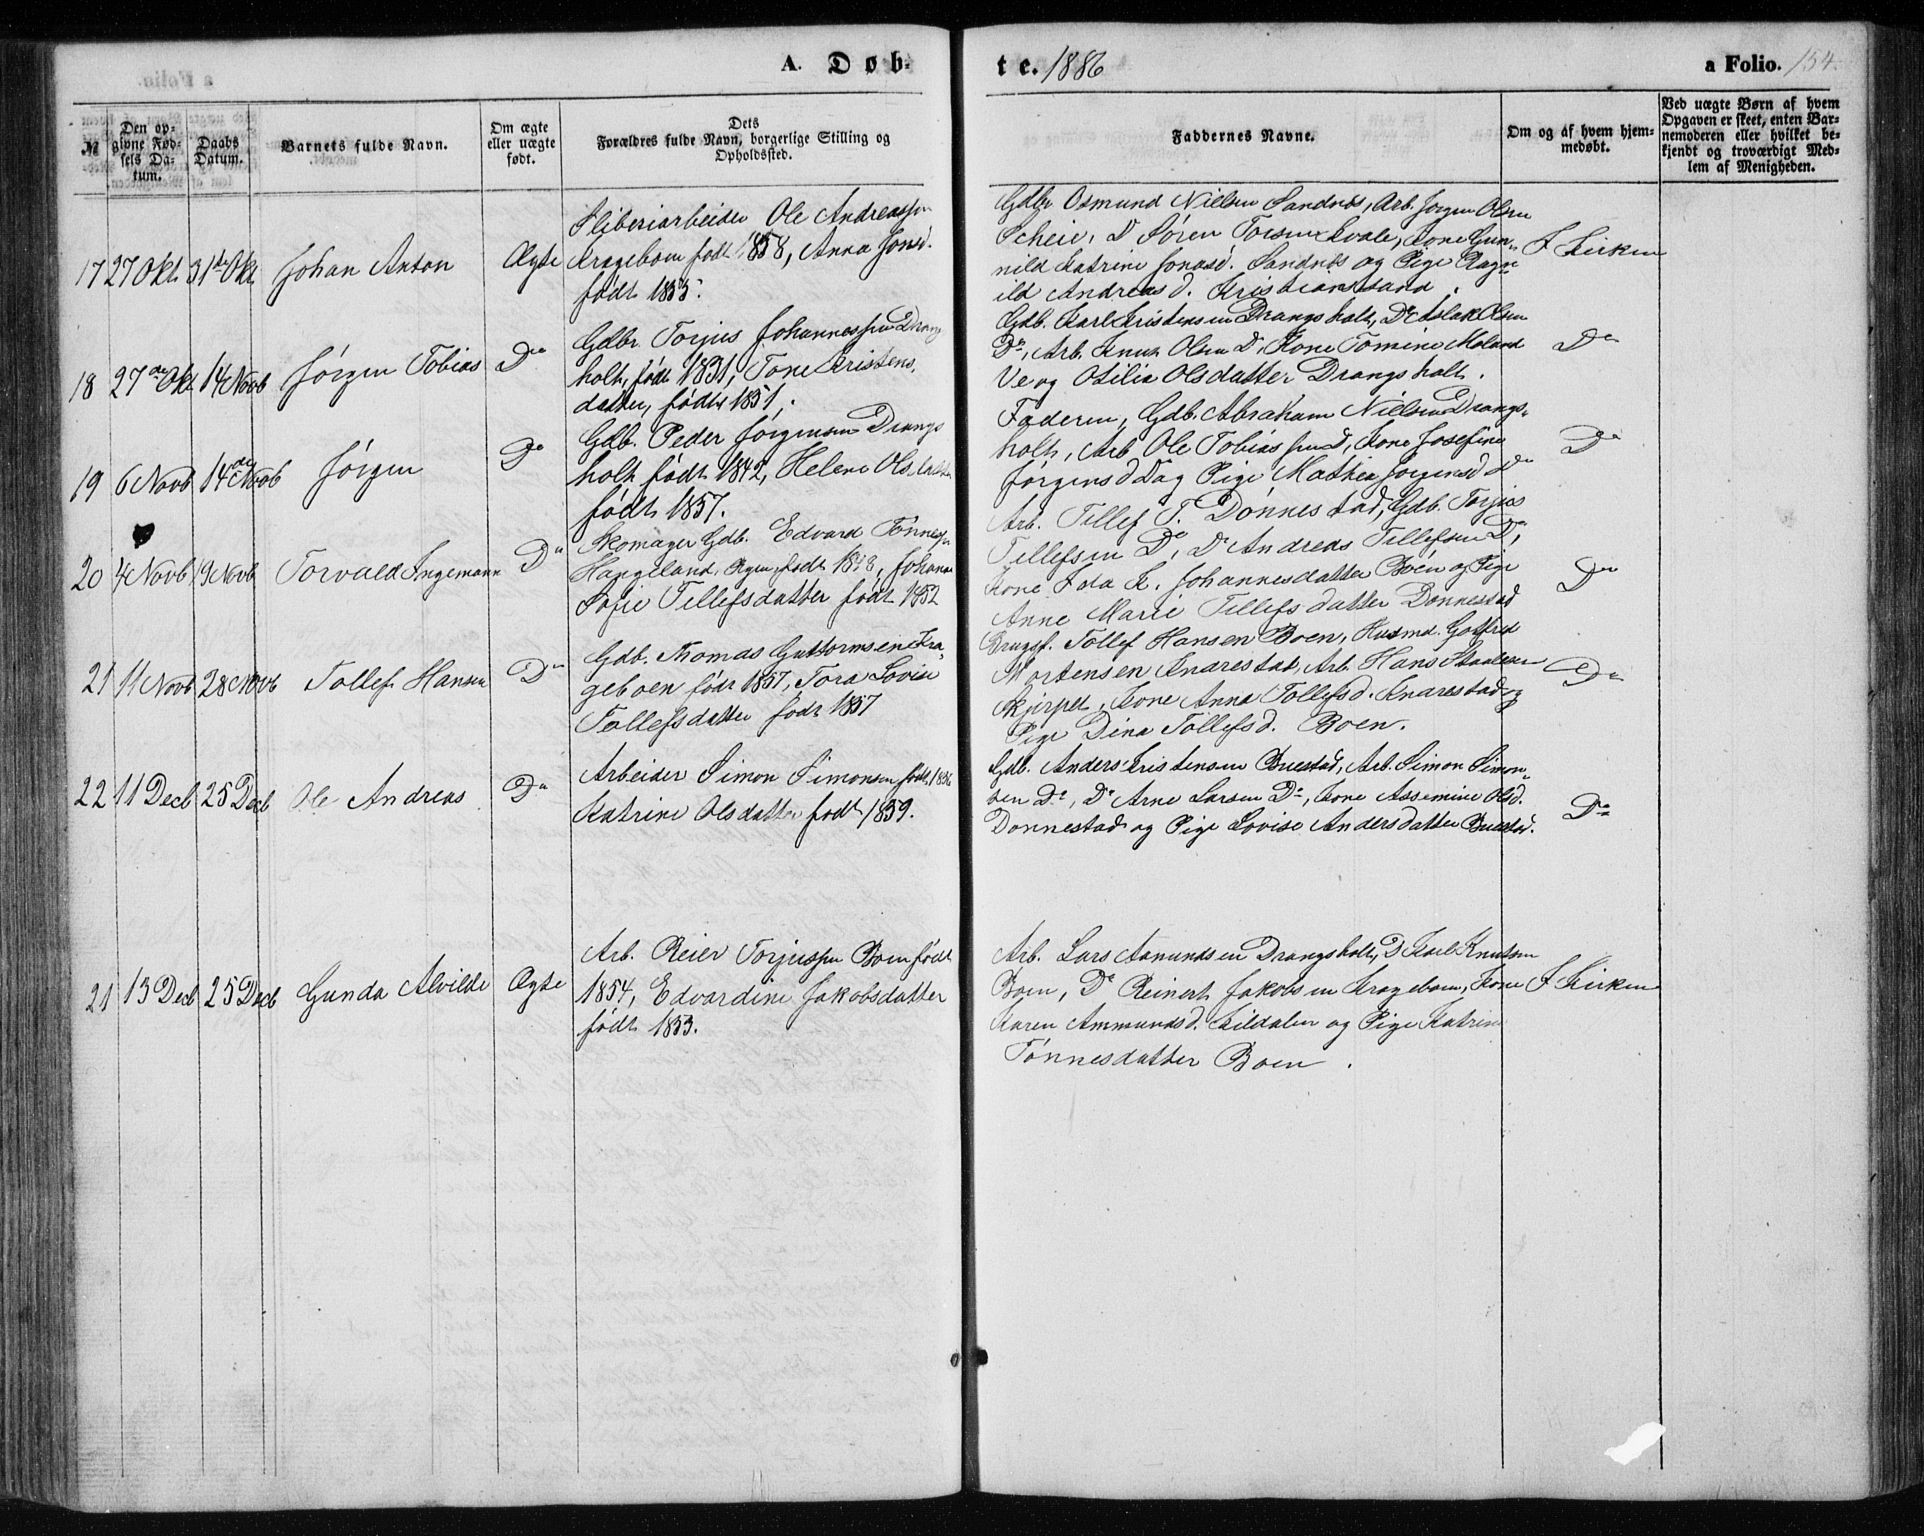 A. Døb-
te. 1886
a Folio. 154.
№
Den op-
givne Fød-
sels Da-
tum.
Daabs
Datum.
Barnets fulde Navn.
Om ægte
eller uægte
født.
Dets
Forældres fulde Navn, borgerlige Stilling og
Opholdssted.
Faddernes Navne.
Om og af hvem hjem-
medøbt.
Ved uægte Børn af hvem
Opgaven er skeet, enten Bar-
nemoderen eller hvilket be-
kjendt og troværdigt Med-
lem af Menigheden.
17 27 Okt 31te Okt Johan Anton Ægte
Sliberiarbeider Ole Andreassen
Krageboen født 1858, Anna Jonsd.
født 1855.
Gdbr Osmund Nielsen Sandnes, Arb. Jørgen Olsen
Scheie, Do Søren Torsen Kvale, Kone Gun-
nild Katrine Jonasd. Sandnes og Pige Ragn
ild Andreasd. Kristianssand.
I Kirken
18 27de Okt 14 Novb Jørgen Tobias Do
Gdbr. Torjus Johannessen Drangs
holt, født 1831, Tone Kristens
datter, født 1851.
Gdb. Karl Kristensen Drangsholt, Do Aslak Olsen
Do, Arb. Knut Olsen Do, Kone Tomine Moland
Ve og Otilia Olsdatter Drangsholt.
Do
19 6 Novb 14de Novb Jørgen Do
Gdb. Peder Jørgensen Drangs
holt født 1842, Helene Olsdatter
født 1857.
Faderen, Gdb. Abraham Nielsen Drangs-
holt, Arb. Ole Tobiassen Do, Kone Josefine
Jørgensd Do og Pige Mathea Jørgensd Do
Do
20 4 Novb 19 Novb Torvald Ingemann Do
Skomager Gdb. Edvard Tønnesen
Haugeland, født 1848, Johanne
Sofie Tellefsdatter født 1852
Arb. Tellef T. Dønnestad, Gdb. Torjus
Tellefsen Do, Do Andreas Tellefsen Do,
Kone Ida K. Johannesdatter Boen og Pige
Anne Marie Tellefsdatter Dønnestad
Do
21 11 Novb 28 Novb Tollef Hansen Do
Gdb. Thomas Guttormsen Kra-
geboen født 1857, Tora Lovise
Tollefsdatter født 1857
Brugsf. Tollef Hansen Boen, Husmd. Gotfred
Mortensen Knarestad, Arb. Hans Staalesen
Skjerpet, Kone Anna Tollefsd. Knarestad og
Pige Dina Tollefsd. Boen.
Do
22 11 Decb 25 Decb Ole Andreas Do
Arbeider Simon Simonsen født 1856
Katrine Olsdatter født 1859.
Gdb. Anders Kristensen Buestad, Arb. Simon Simon-
sen Do, Do Arne Larsen Do, Kone Assemine Olsd.
Dønnestad og Pige Lovise Andersdatter Buestad.
Do
21 13 Decb 25 Decb Gunda Alvilde Ægte
Arb. Reier Torjussen Boen født
1854, Edvardine Jakobsdatter
født 1853.
Arb. Lars Aanundsen Drangsholt, Do Karl Knutsen
Boen, Do Reinert Jakobsen Krageboen, Kone
Karen Ammundsd. Kildalen og Pige Katrine
Tønnesdatter Boen.
I Kirken